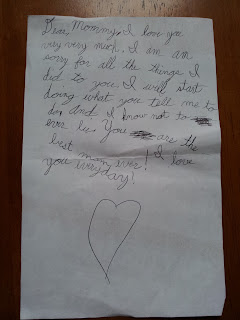 Dear Mommy, I love you
very very much. I am am
sorry for all the things I
did to you. I will start
doing what you tell me to
do. And I know not to
ever lie. You are the
best mom ever! I love
you everyday!